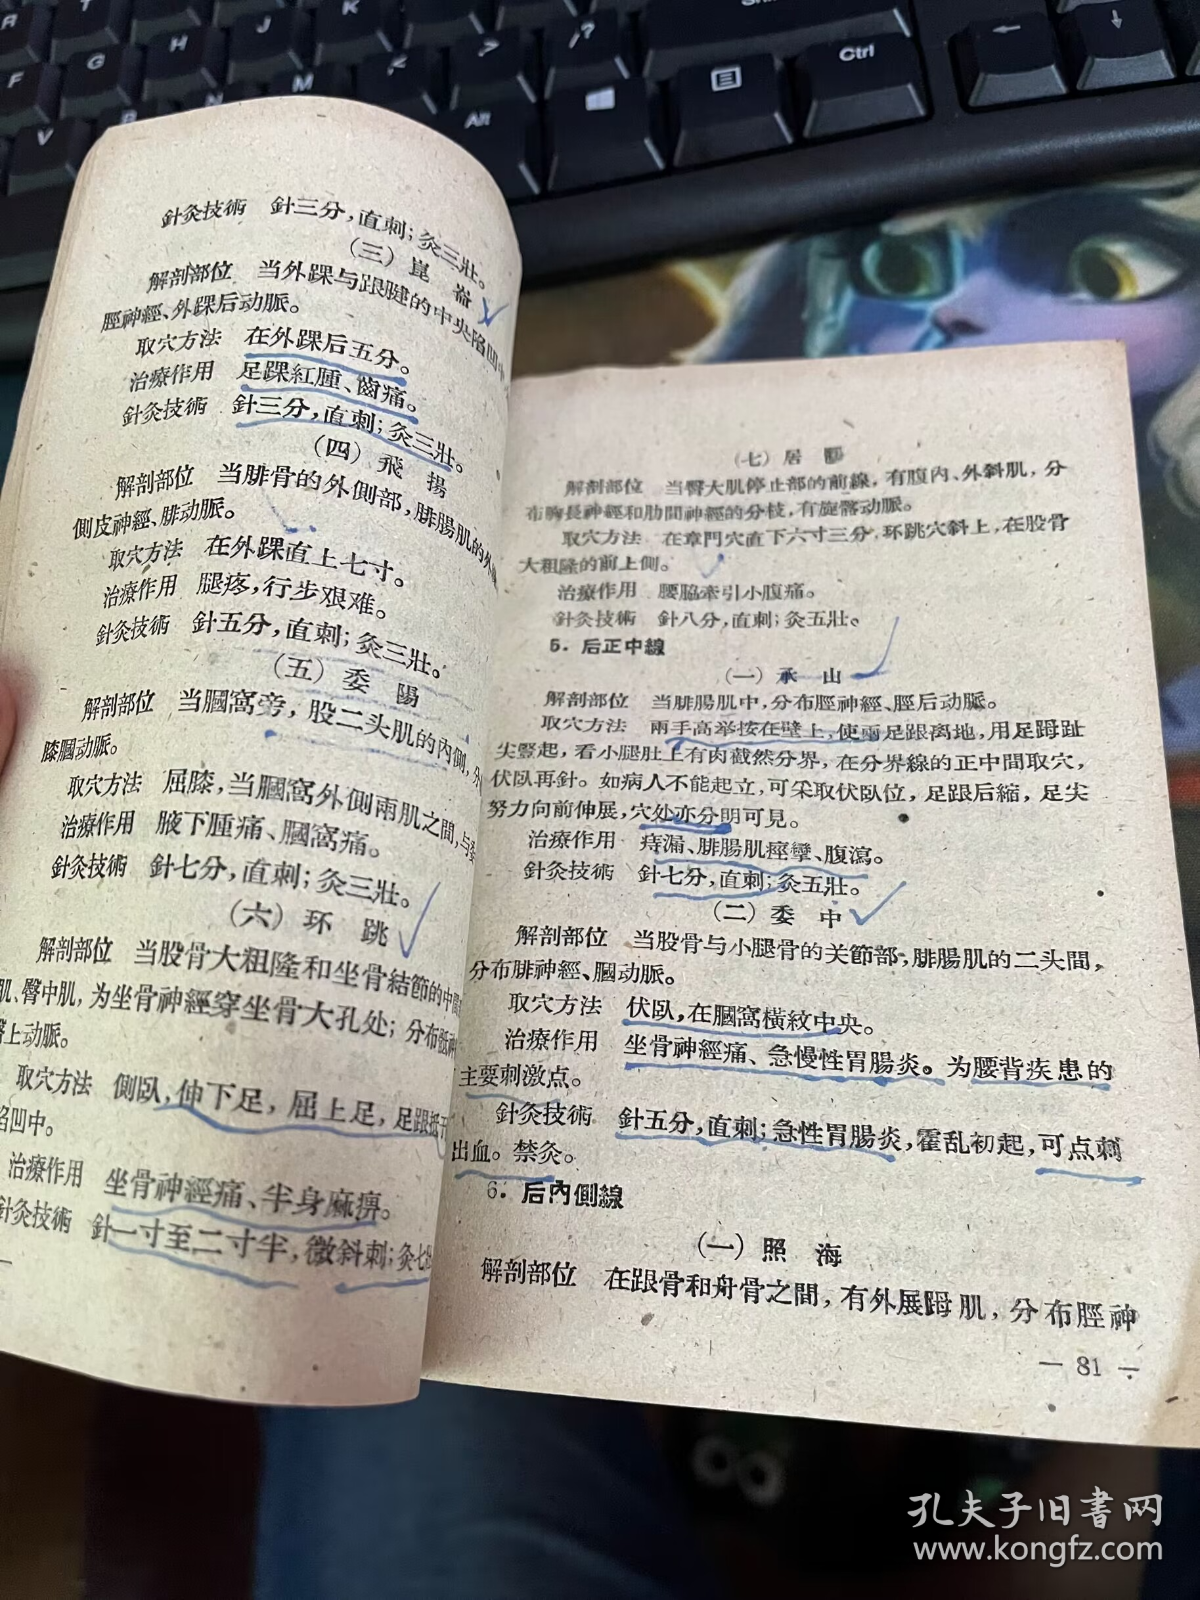 針灸技術 針三分，直刺；灸三壯。
（三）崑崙
解剖部位 当外踝与跟腱的中央陷凹
脛神經、外踝后动脈。
取穴方法 在外踝后五分。
治療作用 足踝紅腫、齒痛。
針灸技術 針三分，直刺；灸三壯。
（四）飛揚
解剖部位 当腓骨的外側部，腓腸肌的外
側皮神經、腓动脈。
取穴方法 在外踝直上七寸。
治療作用 腿疼，行步艰难。
針灸技術 針五分，直刺；灸三壯。
（五）委陽
解剖部位 当膕窩旁，股二头肌的內側，
膝膕动脈。
取穴方法 屈膝，当膕窩外側兩肌之間，与
治療作用 腋下腫痛、膕窩痛。
針灸技術 針七分，直刺；灸三壯。
（六）环跳
解剖部位 当股骨大粗隆和坐骨結節的中間
肌、臀中肌，为坐骨神經穿坐骨大孔处；分布
上动脈。
取穴方法 側臥，伸下足，屈上足，足跟抵于
陷凹中。
治療作用 坐骨神經痛、半身麻痹。
針灸技術 針一寸至二寸半，微斜刺；灸七
（七）居髎
解剖部位 当臀大肌停止部的前線，有腹內、外斜肌，分
布胸長神經和肋間神經的分枝，有旋髂动脈。
取穴方法 在章門穴直下六寸三分，环跳穴斜上，在股骨
大粗隆的前上側。
治療作用 腰脇牽引小腹痛。
針灸技術 針八分，直刺；灸五壯。
5．后正中線
（一）承山
解剖部位 当腓腸肌中，分布脛神經、脛后动脈。
取穴方法 兩手高举按在壁上，使兩足跟离地，用足踇趾
尖豎起，看小腿肚上有肉截然分界，在分界線的正中間取穴，
伏臥再針。如病人不能起立，可采取伏臥位，足跟后縮，足尖
努力向前伸展，穴处亦分明可見。
治療作用 痔漏、腓腸肌痙攣、腹瀉。
針灸技術 針七分，直刺；灸五壯。
（二）委中
解剖部位 当股骨与小腿骨的关節部，腓腸肌的二头間，
分布腓神經、膕动脈。
取穴方法 伏臥，在膕窩橫紋中央。
治療作用 坐骨神經痛、急慢性胃腸炎。为腰背疾患的
主要刺激点。
針灸技術 針五分，直刺；急性胃腸炎，霍乱初起，可点刺
出血。禁灸。
6．后內側線
（一）照海
解剖部位 在跟骨和舟骨之間，有外展踇肌，分布脛神
— 81 —
孔夫子旧書网
www.kongfz.com